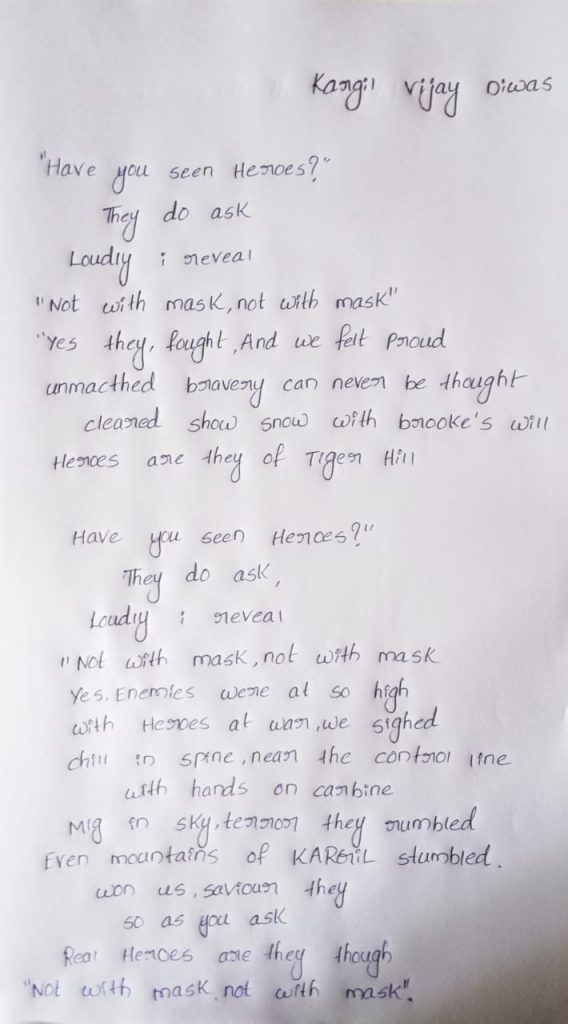 Kargil Vijay Diwas
"Have you seen Heroes?"
They do ask
Loudly i reveal
"Not with mask, not with mask"
"Yes they, fought, And we felt Proud
unmacthed bravery can never be thought
cleared show snow with brooke's will
Heroes are they of Tiger Hill
Have you seen Heroes?"
They do ask,
Loudly i reveal
"Not with mask, not with mask
Yes. Enemies were at so high
with Heroes at war, we sighed
chill in spine, near the control line
with hands on carbine
Mig in sky, terror they rumbled
Even mountains of KARGiL stumbled.
won us, saviour they
so as you ask
Real Heroes are they though
"Not with mask, not with mask".